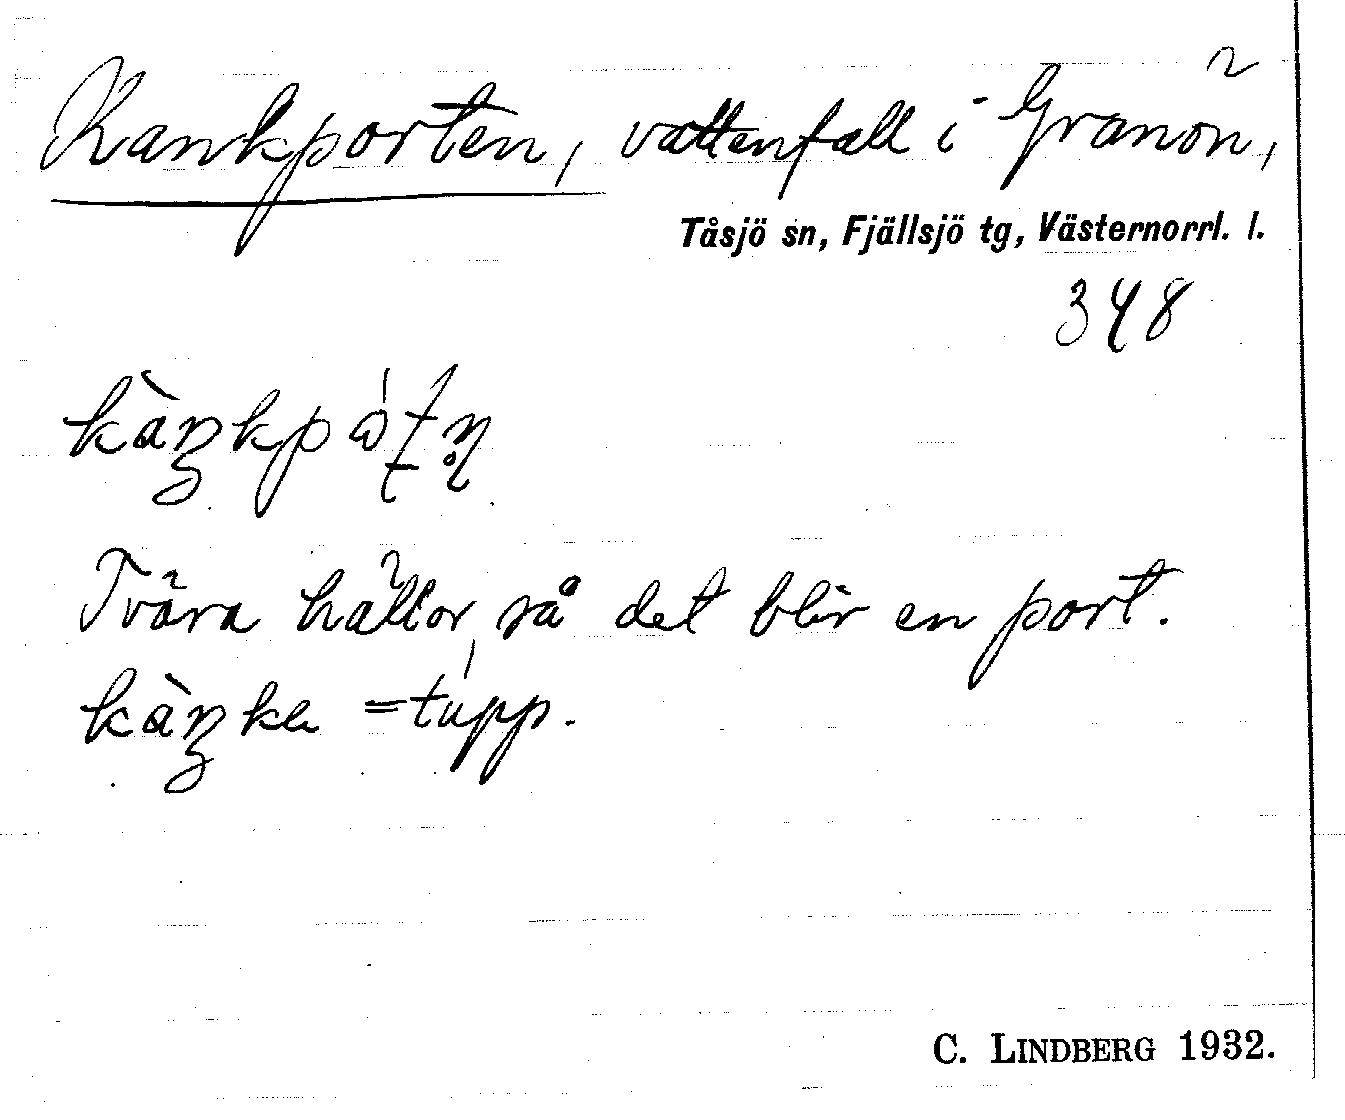 Kankporten, vattenfall i Granön,
Tåsjö sn, Fjällsjö tg, Västernorrl. l.
348
Tvära hällor, så det blir en port.
kàŋka = tupp.
C. LINDBERG 1932.